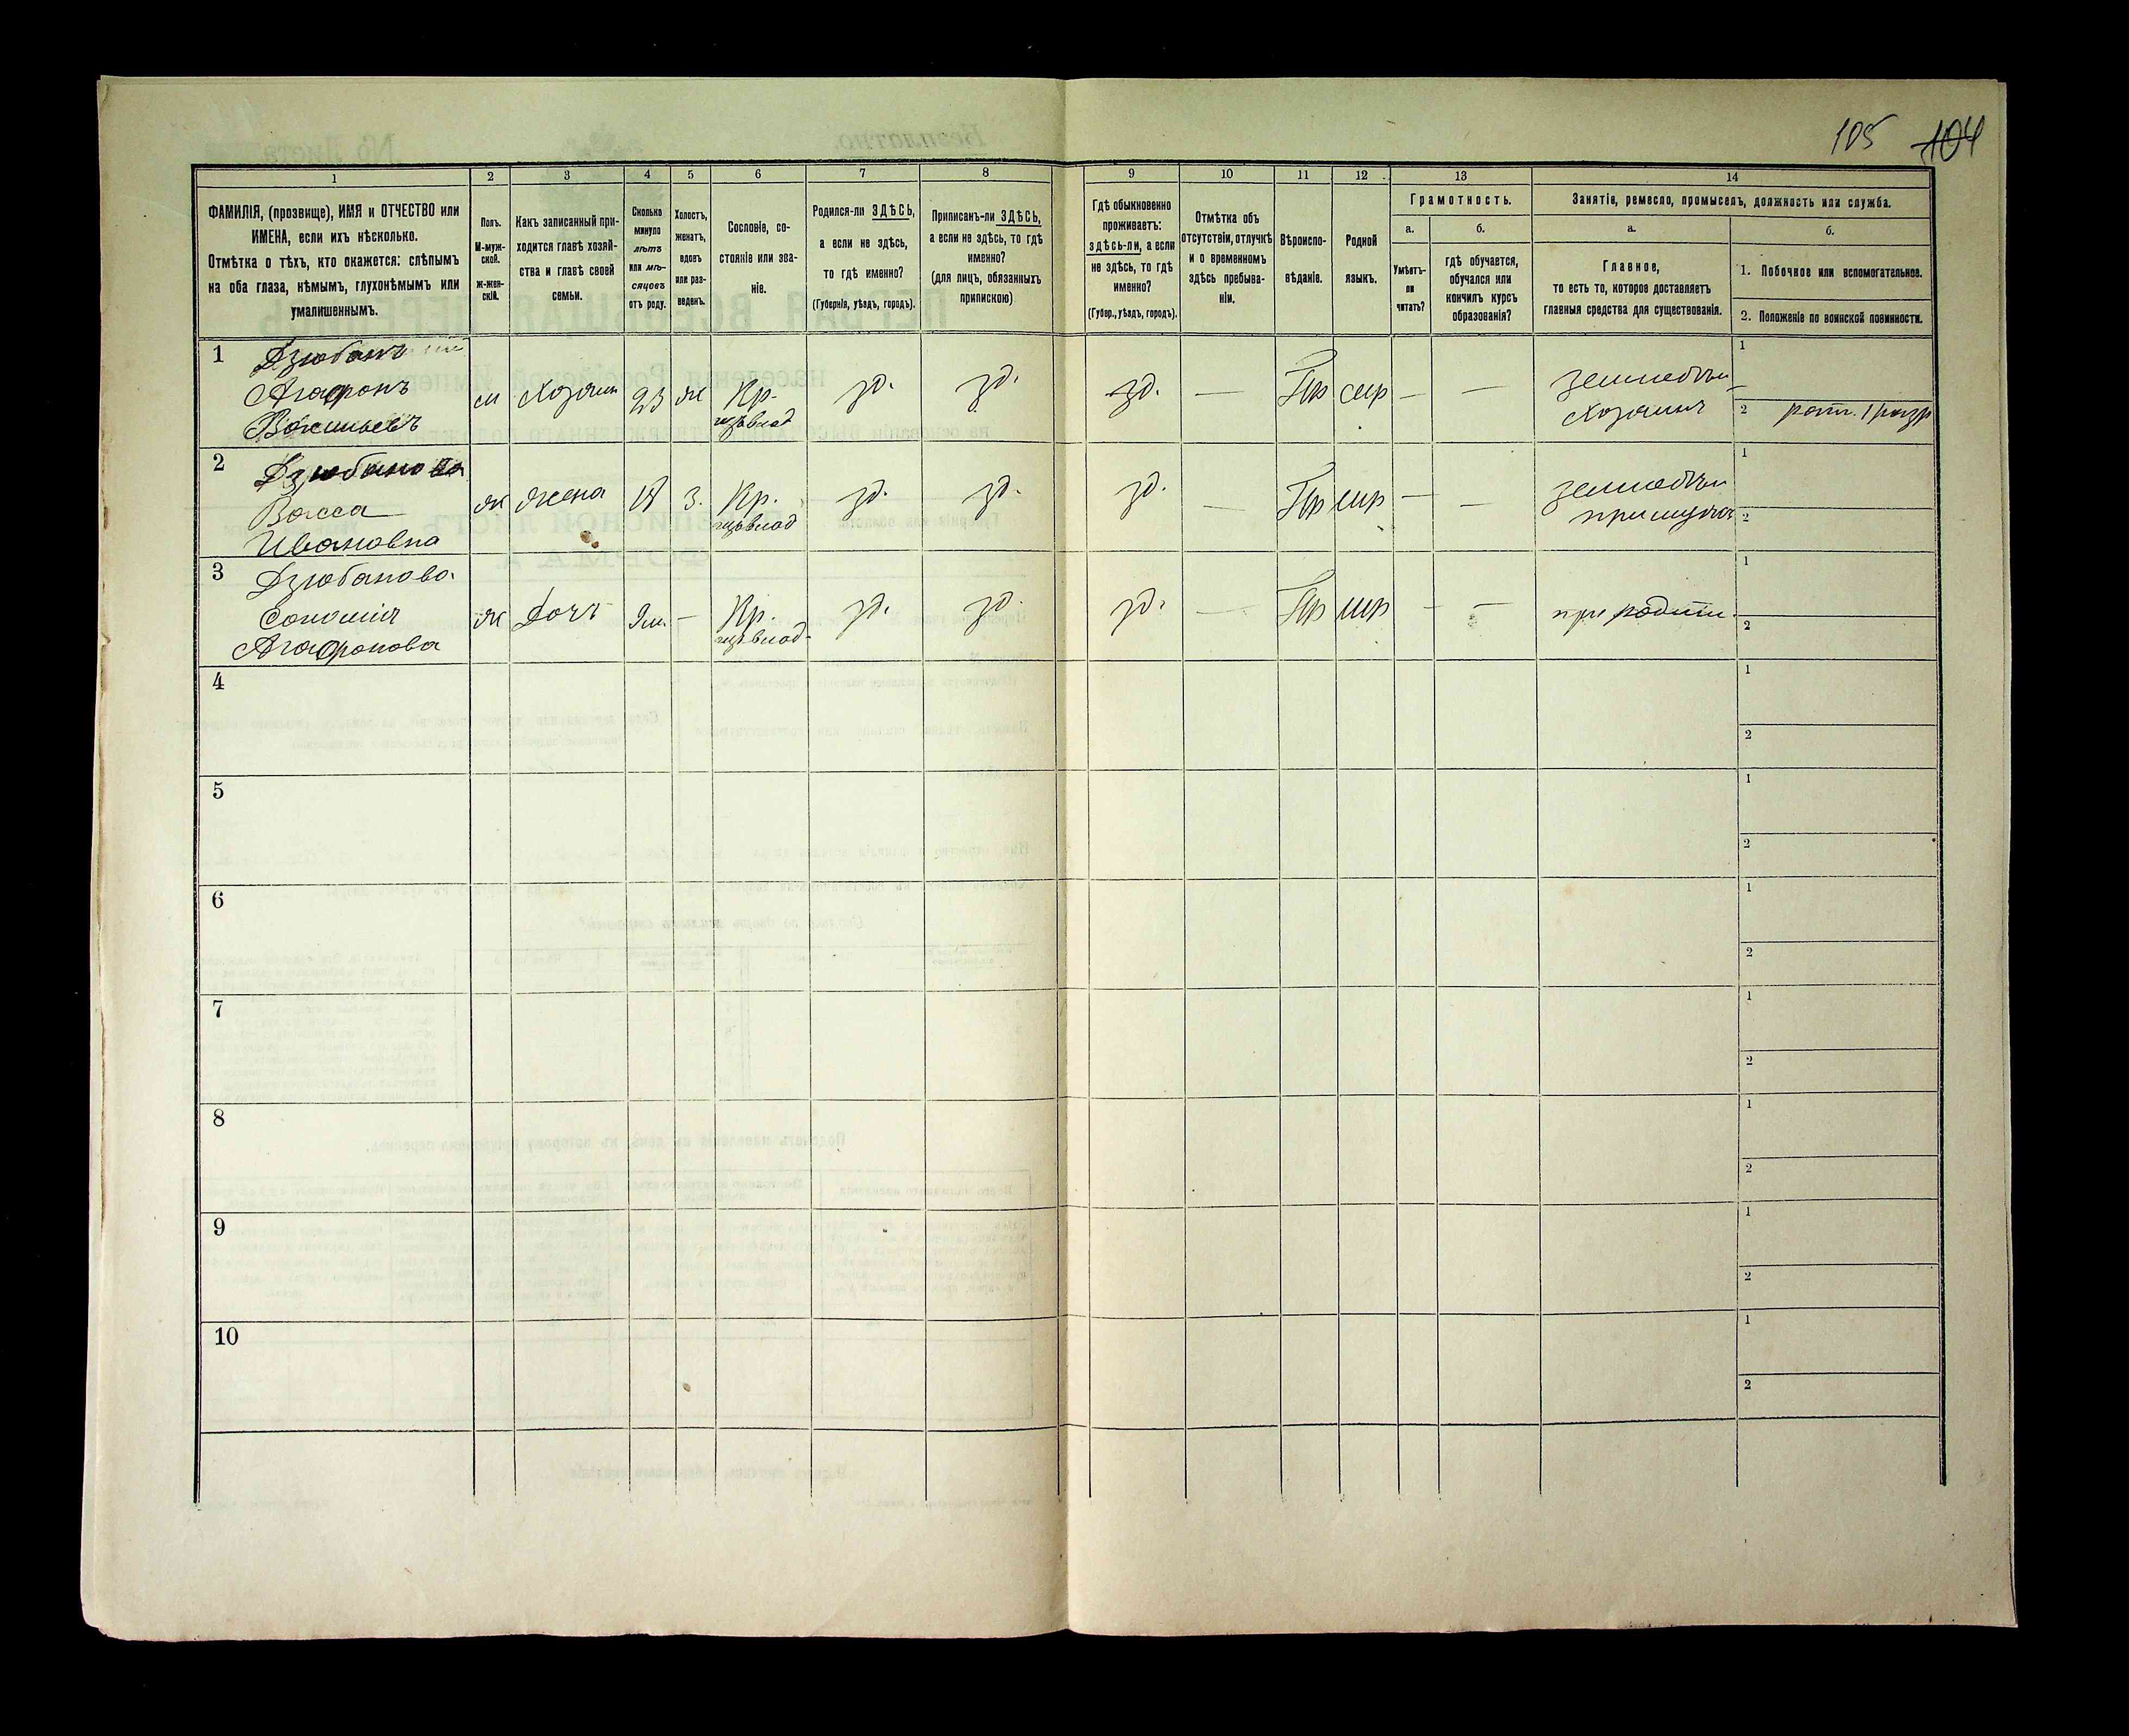 105 104
1 2 3 4 5 6 7 8 9 10 11 12 13 14
ФАМИЛІЯ, (прозвище), ИМЯ и ОТЧЕСТВО или
ИМЕНА, если ихъ нѣсколько.
Отмѣтка о тѣхъ, кто окажется: слѣпымъ
на оба глаза, нѣмымъ, глухонѣмымъ или
умалишеннымъ.
Полъ.
М-муж-
ской.
Ж-жен-
скій.
Какъ записанный при-
ходится главѣ хозяй-
ства и главѣ своей
семьи.
Сколько
минуло
лѣтъ
или мѣ-
сяцевъ
отъ роду.
Холостъ,
женатъ,
вдовъ
или раз-
веденъ.
Сословіе, со-
стояніе или зва-
ніе.
Родился-ли ЗДѢСЬ,
а если не здѣсь,
то гдѣ именно?
(Губернія, уѣздъ, городъ).
Приписанъ-ли ЗДѢСЬ,
а если не здѣсь, то гдѣ
именно?
(для лицъ, обязанныхъ
припискою)
Гдѣ обыкновенно
проживаетъ:
здѣсь-ли, а если
не здѣсь, то гдѣ
именно?
(Губер., уѣздъ, городъ).
Отмѣтка объ
отсутствіи, отлучкѣ
и о временномъ
здѣсь пребыва-
ніи.
Вѣроиспо-
вѣданіе.
Родной
языкъ.
Грамотность.
а.
Умѣетъ-
ли
читать?
б.
гдѣ обучается,
обучался или
кончилъ курсъ
образованія?
Занятіе, ремесло, промыселъ, должность или служба.
а.
Главное,
то есть то, которое доставляетъ
главныя средства для существованія.
б.
1. Побочное или вспомогательное.
2. Положеніе по воинской повинности.
1 Дзюбанъ
Агафонъ
Васильевъ
м Хозяин 23 ж Кр. зд. зд. зд. — Пр мр — —
земледѣл
Хозяинъ
1 —
2 ратн. 1 разр
2 Дзюбанова
Васса
Ивановна
ж жена 18 з. Кр. зд. зд. зд. — Пр мр — —
земледѣл
1
2
3 Дзюбанова
Соломія
Агафонова
ж Дочь 9м. — Кр. зд. зд. зд. — Пр мр — —
при родит.
1
2
4 1
2
5 1
2
6 1
2
7 1
2
8 1
2
9 1
2
10 1
2